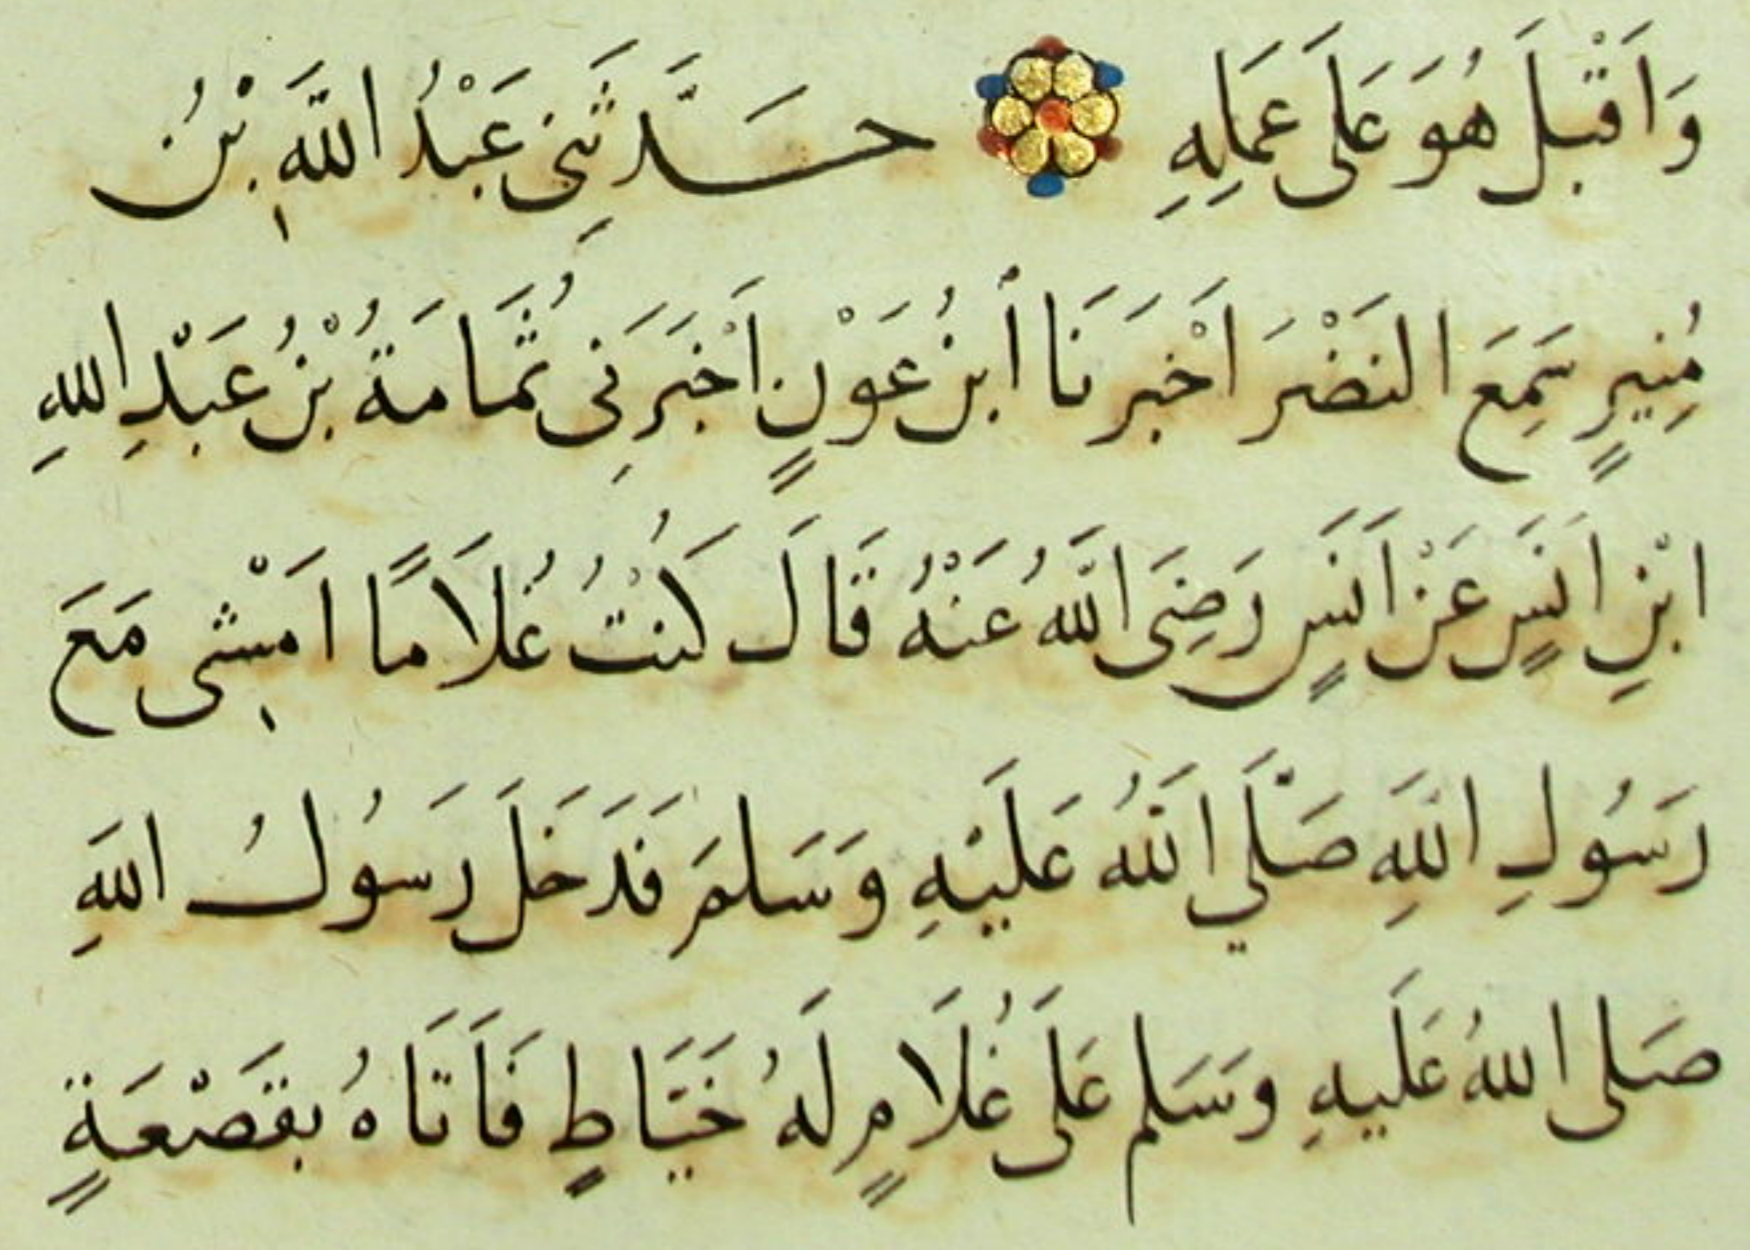 وَاَقْبَلَ هُوَ عَلَى عَمَلِهِ حَدَّثَنِي عَبْدُ اللَّهِ بْنُ
مُنِيرٍ سَمِعَ النَضْرَ اَخْبَرَنَا ابْنُ عَوْنٍ اَخْبَرَنِى ثُمَامَةُ بْنُ عَبْدِ اللهِ
ابْنِ اَنَسٍ عَنْ اَنَسٍ رَضِىَ اللَّهُ عَنْهُ قَالَ كُنْتُ غُلَامًا اَمْشِى مَعَ
رَسُولِ اللهِ صَلَّي اللَّهُ عَلَيْهِ وَسَلَمَ فَدَخَلَ رَسُولُ اللهِ
صَلى اللهُ عَلَيهِ وَسَلم عَلَى غُلَامٍ لَهُ خَيَاطٍ فَاَتَاهُ بقَصْعَةٍ